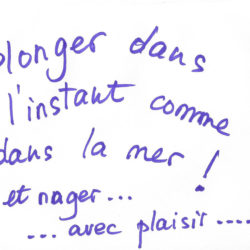 plonger dans
l'instant comme
dans la mer !
et nager...
... avec plaisir .....